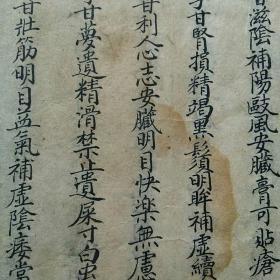 甘滋陰補陽敺風安臟膏可贴瘡
甘腎損精竭黑鬚明眸補虛續
甘利人心志安臟明目快樂無慮
甘夢遺精滑禁止遺尿寸白虫
甘壮筋明目益氣補虛陰痿當